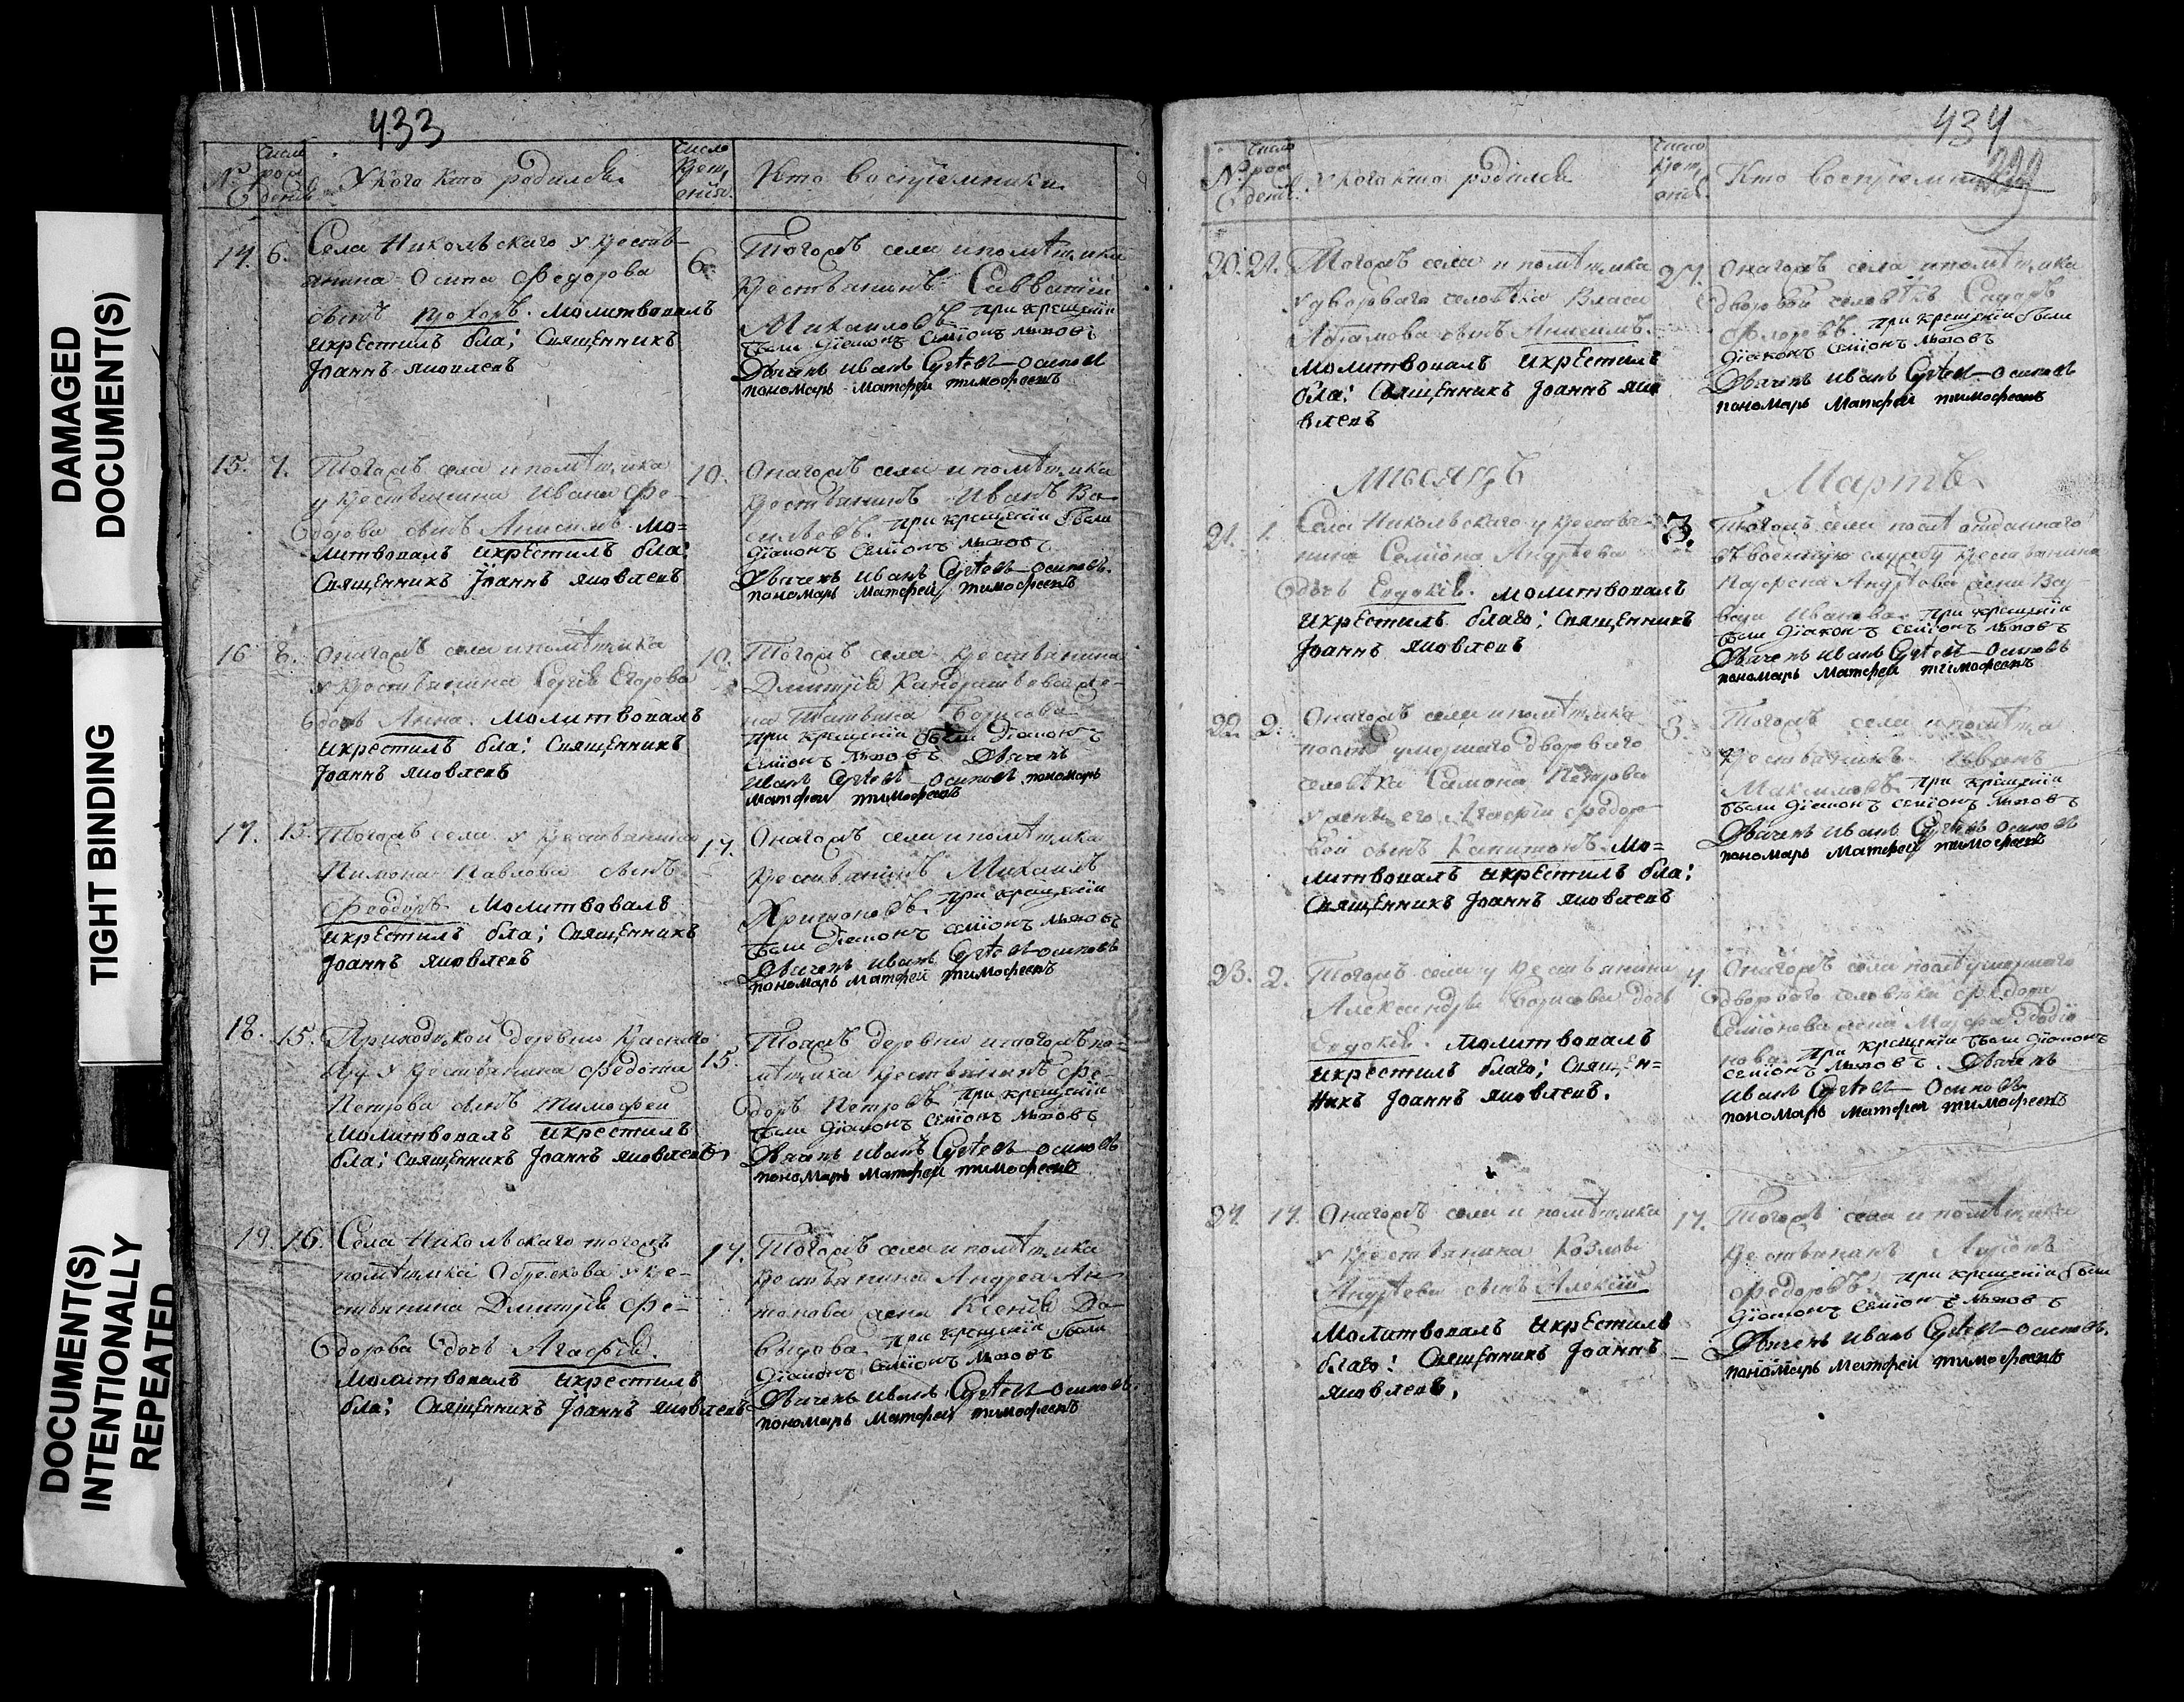 DAMAGED
DOCUMENT(S)
TIGHT BINDING
DOCUMENT(S)
INTENTIONALLY
REPEATED
433
№
число рож денія
У кого кто родился
число крещ енія.
Кто воспріемники
14. 6.
Села Никольскаго у крестья-
нина Осипа Федорова
сынъ Прохоръ. Молитвовалъ
и крестилъ бла: Священникъ
Іоаннъ Яковлевъ
6.
Тогожъ села и помѣщика
крестьянинъ Савватій
Михаиловъ при крещеніи
были діаконъ Семіонъ Львовъ
Дьячекъ Иванъ Сергѣевъ Осиповъ
пономарь Матфей Тимофеевъ
15. 7.
Тогожъ села и помѣщика
у крестьянина Ивана Фе-
дорова сынъ Анисимъ. Мо=
литвовалъ и крестилъ бла:
Священникъ Іоаннъ Яковлевъ
10.
Онагожъ села и помѣщика
крестьянинъ Иванъ Ва-
сильевъ. при крещеніи были
діаконъ Семіонъ Львовъ
Дьячекъ Иванъ Сергѣевъ Осиповъ.
пономарь Матфей Тимофеевъ
16 8.
Онагожъ села и помѣщика
у крестьянина Сергія Егорова
дочь Анна. Молитвовалъ
и крестилъ бла: Священникъ
Іоаннъ Яковлевъ
10.
Тогожъ села крестьянина
Дмитрія Кандратьева же-
на Татьяна Борисова
при крещеніи были діаконъ
Семіонъ Львовъ Дьячекъ
Иванъ Сергѣевъ Осиповъ пономарь
Матфей Тимофеевъ
17. 15.
Тогожъ села у крестьянина
Пимона Павлова сынъ
Феодоръ. Молитвовалъ
и крестилъ бла: Священникъ
Іоаннъ Яковлевъ
17.
Онагожъ села и помѣщика
крестьянинъ Михаилъ
при крещеніи
были діаконъ Семіонъ Львовъ
Дьячекъ Иванъ Сергѣевъ Осиповъ
пономарь Матфей Тимофеевъ
18. 15.
Приходской деревни
у крестьянина Федота
Петрова сынъ Тимофеи
Молитвовалъ и крестилъ
бла: Священникъ Іоаннъ Яковлевъ
15.
Тояжъ деревни и тогожъ по-
мѣщика крестьянинъ Фе-
доръ Петровъ при крещеніи
были діаконъ Семіонъ Львовъ
Дьячекъ Иванъ Сергѣевъ Осиповъ
пономарь Матфей Тимофеевъ
19. 16.
Села Никольскаго тогожъ
помѣщика Обрескова у кре-
стьянина Дмитрія Фе-
дорова дочь Агафія.
Молитвовалъ и крестилъ
бла: Священникъ Іоаннъ Яковлевъ
17.
Тогожъ села и помѣщика
крестьянина Андрея Ан-
тонова жена Ксенія Да-
выдова. при крещеніи были
діаконъ Семіонъ Львовъ
Дьячекъ Иванъ Сергѣевъ Осиповъ.
пономарь Матфей Тимофеевъ
434
№
число рож денія.
У кого кто родился
число крещ енія.
Кто воспріемники
20. 21.
Тогожъ села и помѣщика
у двороваго человѣка Власа
Абрамова сынъ Анисимъ.
Молитвовалъ и крестилъ
бла: Священникъ Іоаннъ Яко
влевъ
24.
Онагожъ села и помѣщика
дворовой человѣкъ Сидоръ
Флоровъ. при крещеніи были
діаконъ Семіонъ Львовъ
Дьячекъ Иванъ Сергѣевъ Осиповъ
пономарь Матфей Тимофеевъ
Мѣсяцъ Мартъ
21. 1.
Села Никольскаго у крестья-
нина Семіона Андрѣева
дочь Евдокія. Молитвовалъ
и крестилъ благо: Священникъ
Іоаннъ Яковлевъ
3.
Тогожъ села послѣ отданнаго
въ военную службу крестьянина
Парфена Андрѣева жена Ва-
Иванова. при крещеніи
были діаконъ Семіонъ Львовъ
Дьячекъ Иванъ Сергѣевъ Осиповъ
пономарь Матфей Тимофеевъ
22. 2.
Онагожъ села и помѣщика
послѣ умершаго двороваго
человѣка Самона Петрова
у жены его Агафіи Федоро-
вой сынъ Капитонъ. Мо=
литвовалъ и крестилъ бла:
Священникъ Іоаннъ Яковлевъ
3.
Тогожъ села и помѣщика
крестьянинъ Иванъ
Максимовъ. при крещеніи
были діаконъ Семіонъ Львовъ
Дьячекъ Иванъ Сергѣевъ Осиповъ
пономарь Матфей Тимофеевъ
23. 2.
Тогожъ села у крестьянина
Александра Борисова дочь
Евдокія. Молитвовалъ
и крестилъ благо: Священ=
никъ Іоаннъ Яковлевъ.
4.
Онагожъ села послѣ умершаго
двороваго человѣка Федота
Семіонова жена Марфа Родіо-
нова. при крещеніи были діаконъ
Семіонъ Львовъ. Дьячекъ
Иванъ Сергѣевъ Осиповъ
пономарь Матфей Тимофеевъ
24. 17.
Онагожъ села и помѣщика
у крестьянина Козмы
Андрѣева сынъ Алексій
Молитвовалъ и крестилъ
благо: Священникъ Іоаннъ
Яковлевъ.
17.
Тогожъ села и помѣщика
крестьянинъ
Федоровъ. при крещеніи были
діаконъ Семіонъ Львовъ
Дьячекъ Иванъ Сергѣевъ Осиповъ.
пономарь Матфей Тимофеевъ